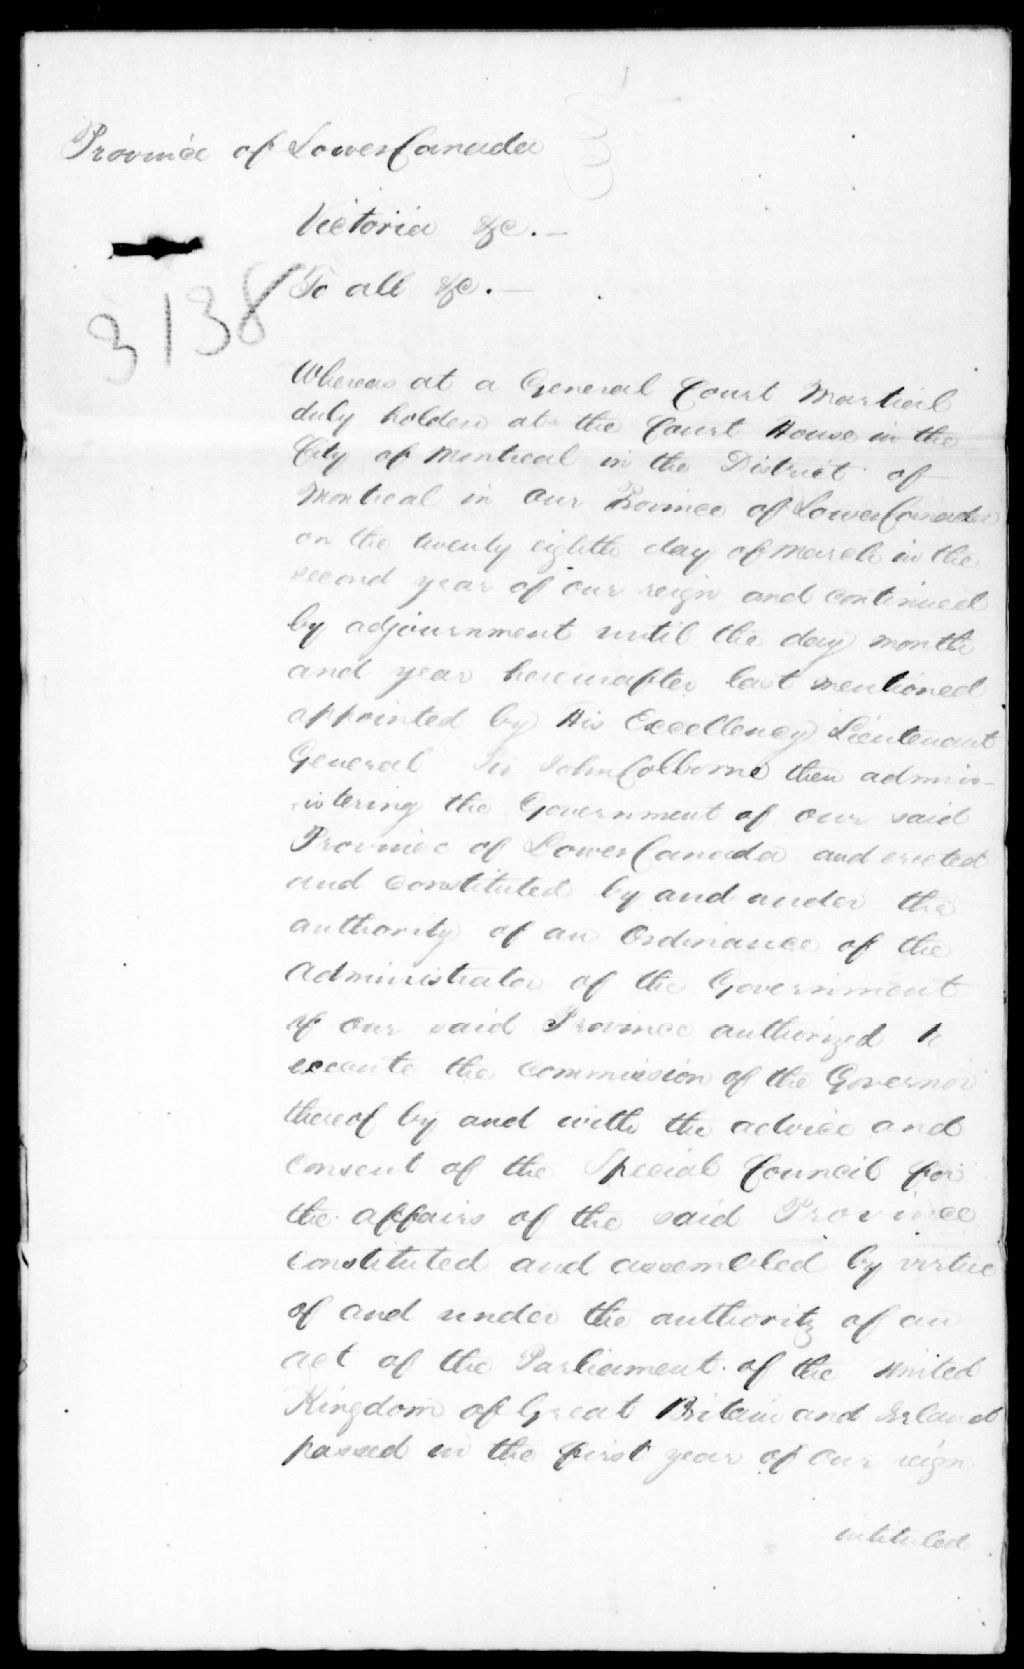 Province of Lower Canada
Victoria &c. —
To all &c. —
3138
Whereas at a General Court Martial
duly holden at the Court House in the
City of Montreal in the District of
Montreal in Our Province of Lower Canada
on the twenty eighth day of March in the
second year of our reign and continued
by adjournment until the day month
and year hereinafter last mentioned
appointed by His Excellency Lieutenant
General Sir John Colborne then admin-
-istering the Government of our said
Province of Lower Canada and erected
and constituted by and under the
authority of an Ordinance of the
Administrator of the Government
of our said Province authorized to
execute the commission of the Governor
thereof by and with the advice and
consent of the Special Council for
the affairs of the said Province
constituted and assembled by virtue
of and under the authority of an
act of the Parliament of the United
Kingdom of Great Britain and Ireland
passed in the first year of Our reign
intituled